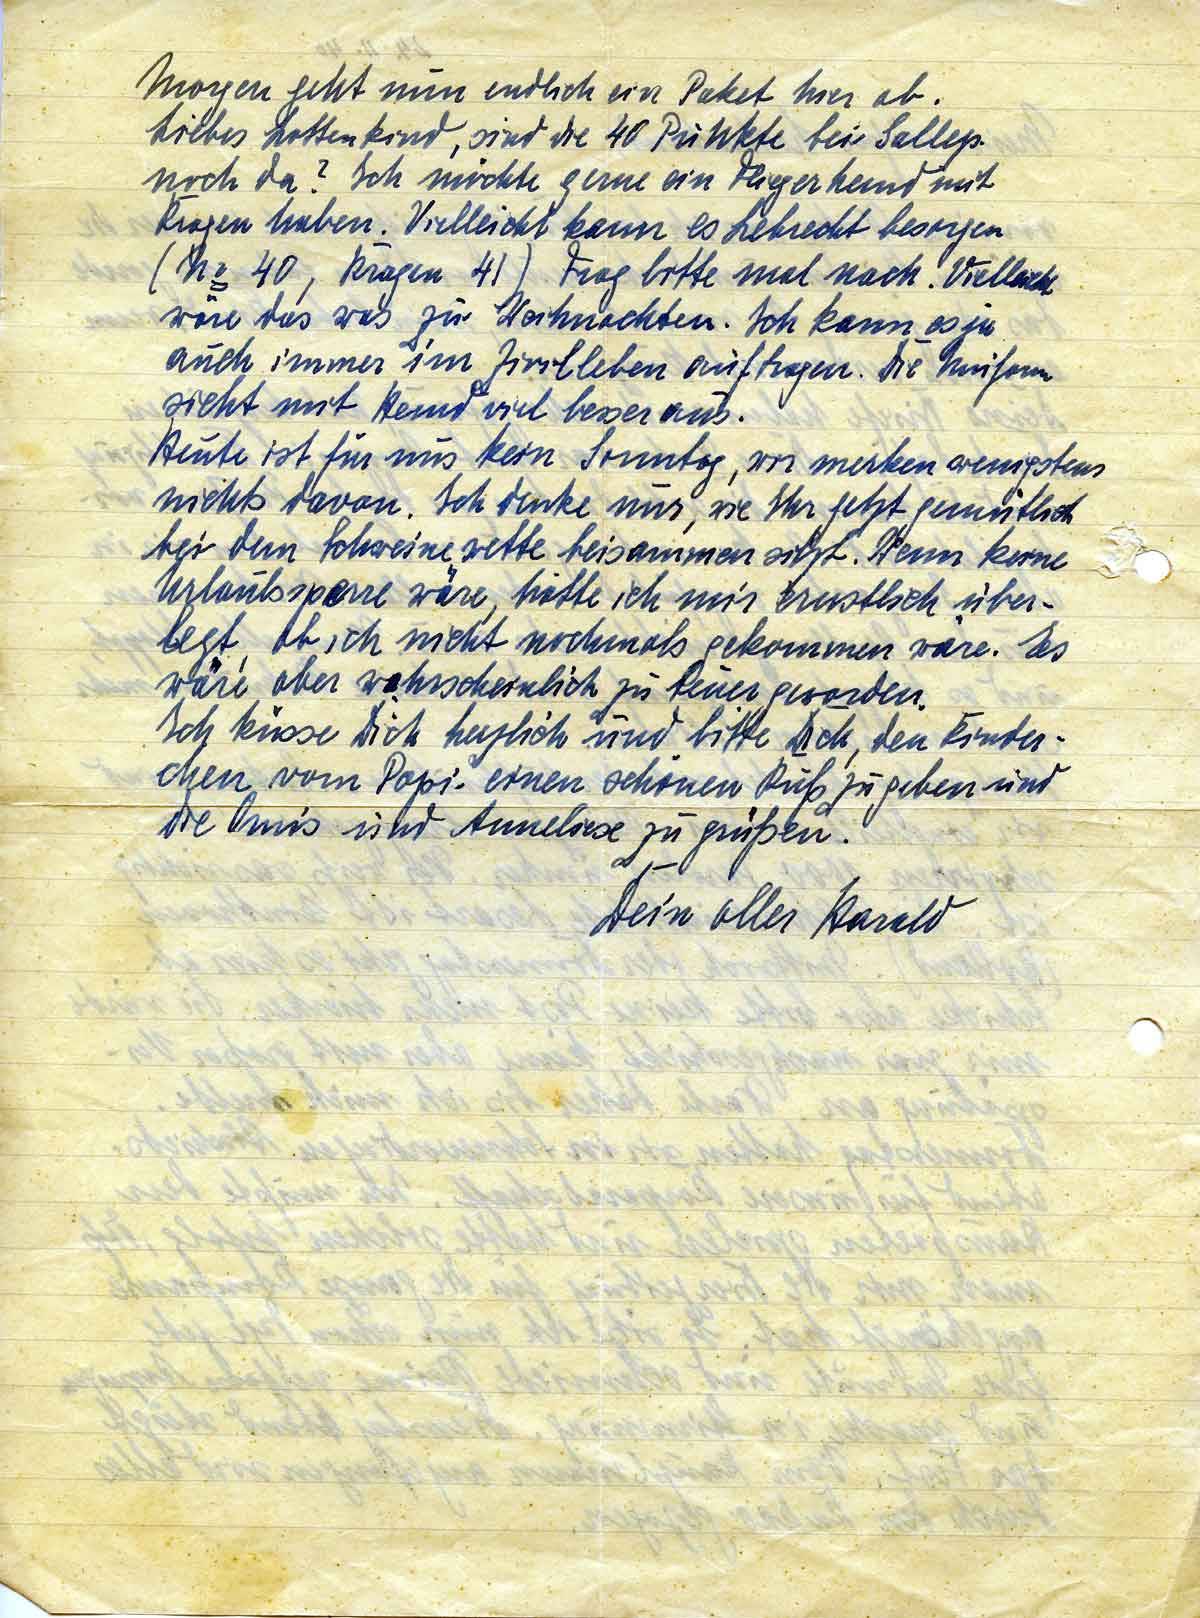 Morgen geht nun endlich ein Paket hier ab.
Liebes Lottenkind, sind die 40 Punkte bei
noch da? Ich möchte gerne ein Fliegerhemd mit
Kragen haben. Vielleicht kann es Lebrecht besorgen
(No 40, Kragen 41) Frag bitte mal nach. Vielleicht
wäre das was zu Weihnachten. Ich kann es ja
auch immer im Zivilleben auftragen. Die Uniform
sieht mit Hemd viel besser aus.
Heute ist für uns kein Sonntag, wir merken wenigstens
nichts davon. Ich denke nur, wie Ihr jetzt gemütlich
bei dem Schweinewette beisammen sitzt. Wenn keine
Urlaubssperre wäre, hätte ich mir ernstlich über-
legt, ob ich nicht nochmals gekommen wäre. Es
wäre aber wahrscheinlich zu teuer geworden.
Ich küsse Dich herzlich und bitte Dich, den Kinder-
chen vom Papi einen schönen Kuß zu geben und
die Omis und Anneliese zu grüßen.
Dein oller Harald